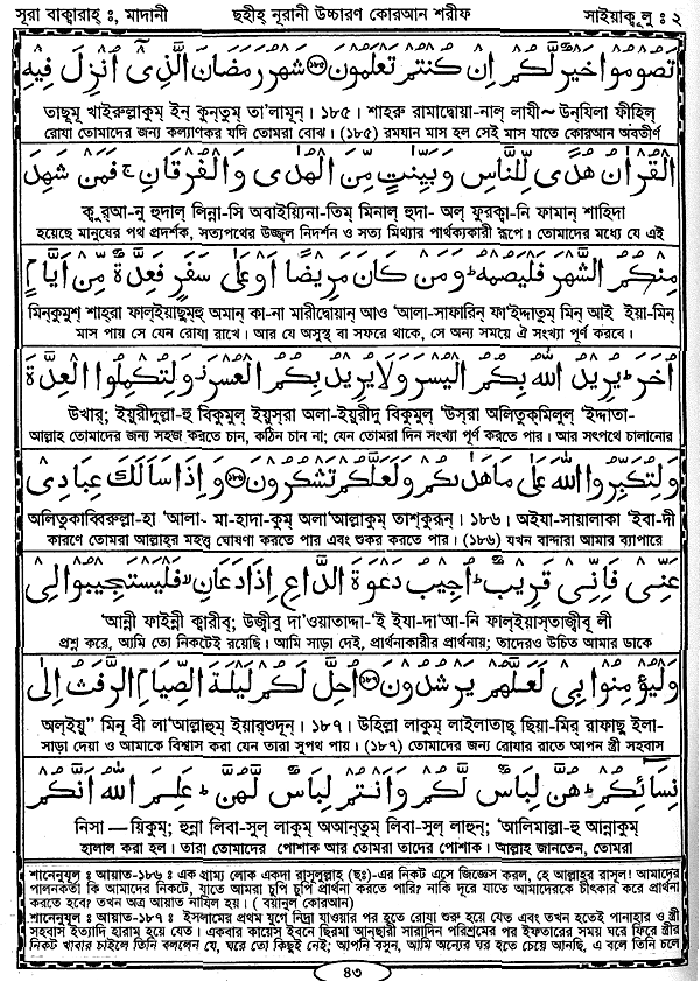 সূরা বাক্বারাহ্ ঃ, মাদানী
ছহীহ্ নূরানী উচ্চারণ কোরআন শরীফ
সাইয়াক্বূলু ঃ ২
تَصُومُوا خَيْرٌ لَّكُمْ إِن كُنتُمْ تَعْلَمُونَ ﴿١٨٤﴾ شَهْرُ رَمَضَانَ الَّذِيٓ أُنزِلَ فِيهِ
তাছূমূ খাইরুল্লাকুম্ ইন্ কুন্তুম্ তা'লামূন্। ১৮৫। শাহরু রামাদ্বোয়া-নাল্ লাযী~ উন্‌যিলা ফীহিল্
রোযা তোমাদের জন্য কল্যাণকর যদি তোমরা বোঝ। (১৮৫) রমযান মাস হল সেই মাস যাতে কোরআন অবতীর্ণ
الْقُرْاٰنُ هُدًى لِّلنَّاسِ وَبَيِّنٰتٍ مِّنَ الْهُدٰى وَالْفُرْقَانِ ۚ فَمَن شَهِدَ
ক্বুরআ-নু হুদাল্ লিন্না-সি অবাইয়্যিনা-তিম্ মিনাল্ হুদা- অল্ ফুরক্বা-নি ফামান্ শাহিদা
হয়েছে মানুষের পথ প্রদর্শক, সত্যপথের উজ্জ্বল নিদর্শন ও সত্য মিথ্যার পার্থক্যকারী রূপে। তোমাদের মধ্যে যে এই
مِنكُمُ الشَّهْرَ فَلْيَصُمْهُ ۖ وَمَن كَانَ مَرِيضًا أَوْ عَلٰى سَفَرٍ فَعِدَّةٌ مِّنْ أَيَّامٍ
মিন্‌কুমুশ্ শাহ্‌রা ফাল্‌ইয়াছুম্‌হু অমান্ কা-না মারীদ্বোয়ান্ আও 'আলা-সাফারিন্ ফা'ইদ্দাতুম্ মিন্ আই ইয়া-মিন্
মাস পায় সে যেন রোযা রাখে। আর যে অসুস্থ বা সফরে থাকে, সে অন্য সময়ে ঐ সংখ্যা পূর্ণ করবে।
أُخَرَ ۗ يُرِيدُ اللّٰهُ بِكُمُ الْيُسْرَ وَلَا يُرِيدُ بِكُمُ الْعُسْرَ وَلِتُكْمِلُوا الْعِدَّةَ
উখার্; ইয়ুরীদুল্লা-হু বিকুমুল্ ইয়ুস্‌রা অলা-ইয়ুরীদু বিকুমুল্ 'উস্‌রা অলিতুক্‌মিলুল্ 'ইদ্দাতা-
আল্লাহ তোমাদের জন্য সহজ করতে চান, কঠিন চান না; যেন তোমরা দিন সংখ্যা পূর্ণ করতে পার। আর সৎপথে চালানোর
وَلِتُكَبِّرُوا اللّٰهَ عَلٰى مَا هَدٰىكُمْ وَلَعَلَّكُمْ تَشْكُرُونَ ﴿١٨٥﴾ وَإِذَا سَأَلَكَ عِبَادِي
অলিতুকাব্বিরুল্লা-হা 'আলা- মা-হাদা-কুম্ অলা'আল্লাকুম্ তাশ্‌কুরূন্। ১৮৬। অইযা-সায়ালাকা 'ইবা-দী
কারণে তোমরা আল্লাহর মহত্ত্ব ঘোষণা করতে পার এবং শুকর করতে পার। (১৮৬) যখন বান্দারা আমার ব্যাপারে
عَنِّي فَإِنِّي قَرِيبٌ ۖ أُجِيبُ دَعْوَةَ الدَّاعِ إِذَا دَعَانِ فَلْيَسْتَجِيبُوا لِي
'আন্নী ফাইন্নী ক্বারীব্; উজীবু দা'ওয়াতাদ্দা-'ই ইযা-দা'আ-নি ফাল্‌ইয়াস্‌তাজীবূ লী
প্রশ্ন করে, আমি তো নিকটেই রয়েছি। আমি সাড়া দেই, প্রার্থনাকারীর প্রার্থনায়; তাদেরও উচিত আমার ডাকে
وَلْيُؤْمِنُوا بِي لَعَلَّهُمْ يَرْشُدُونَ ﴿١٨٦﴾ أُحِلَّ لَكُمْ لَيْلَةَ الصِّيَامِ الرَّفَثُ إِلٰى
অল্‌ইয়ু" মিনূ বী লা'আল্লাহুম্ ইয়ার্‌শুদূন্। ১৮৭। উহিল্লা লাকুম্ লাইলাতাছ্ ছিয়া-মির্ রাফাছু ইলা-
সাড়া দেয়া ও আমাকে বিশ্বাস করা যেন তারা সুপথ পায়। (১৮৭) তোমাদের জন্য রোযার রাতে আপন স্ত্রী সহবাস
نِسَآئِكُمْ ۚ هُنَّ لِبَاسٌ لَّكُمْ وَأَنتُمْ لِبَاسٌ لَّهُنَّ ۗ عَلِمَ اللّٰهُ أَنَّكُمْ
নিসা — য়িকুম্; হুন্না লিবা-সুল্ লাকুম্ অআন্‌তুম্ লিবা-সুল্ লাহুন্; 'আলিমাল্লা-হু আন্নাকুম্
হালাল করা হল। তারা তোমাদের পোশাক আর তোমরা তাদের পোশাক। আল্লাহ জানতেন, তোমরা
শানেনুযূল ঃ আয়াত-১৮৬ ঃ এক গ্রাম্য লোক একদা রাসূলুল্লাহ্ (ছঃ)-এর নিকট এসে জিজ্ঞেস করল, হে আল্লাহর রাসূল! আমাদের
পালনকর্তা কি আমাদের নিকটে, যাতে আমরা চুপি চুপি প্রার্থনা করতে পারি? নাকি দূরে যাতে আমাদেরকে চীৎকার করে প্রার্থনা
করতে হবে? তখন অত্র আয়াত নাযিল হয়। (বয়ানুল কোরআন)
শানেনুযূল ঃ আয়াত-১৮৭ ঃ ইসলামের প্রথম যুগে নিদ্রা যাওয়ার পর হতে রোযা শুরু হয়ে যেত এবং তখন হতেই পানাহার ও স্ত্রী
সহবাস ইত্যাদি হারাম হয়ে যেত। একবার কায়েস ইবনে ছিরমা আনছারী সারাদিন পরিশ্রমের পর ইফতারের সময় ঘরে ফিরে স্ত্রীর
নিকট খাবার চাইলে তিনি বললেন যে, ঘরে তো কিছুই নেই; আপনি বসুন, আমি অন্যের ঘর হতে চেয়ে আনছি, এ বলে তিনি চলে
৪৩